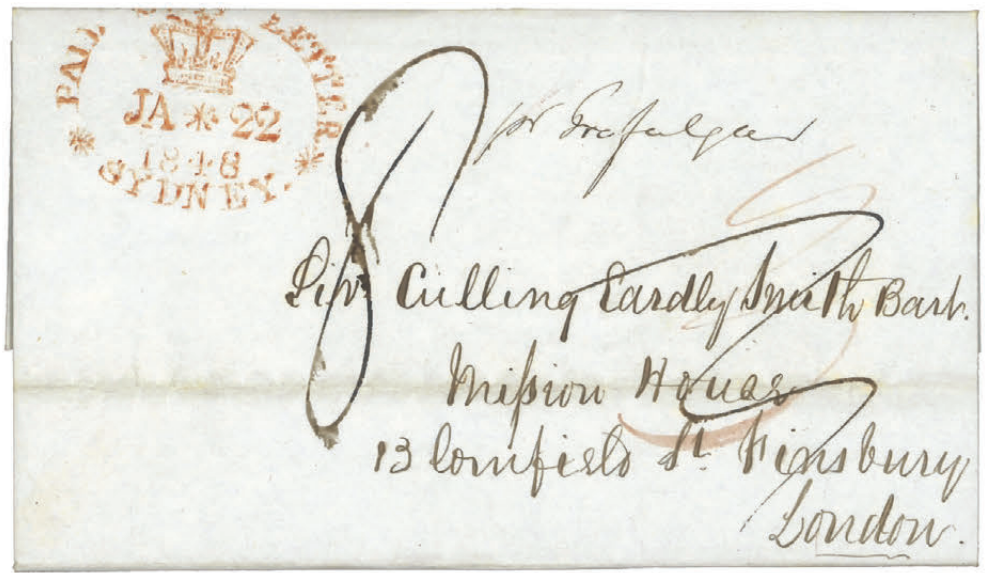 PAID SHIP LETTER
JA * 22
1848
* SYDNEY. *
8
pr Trafalgar
3
Sir Culling Eardly Smith Bart.
Mission House
13 Comfield St. Finsbury
London.